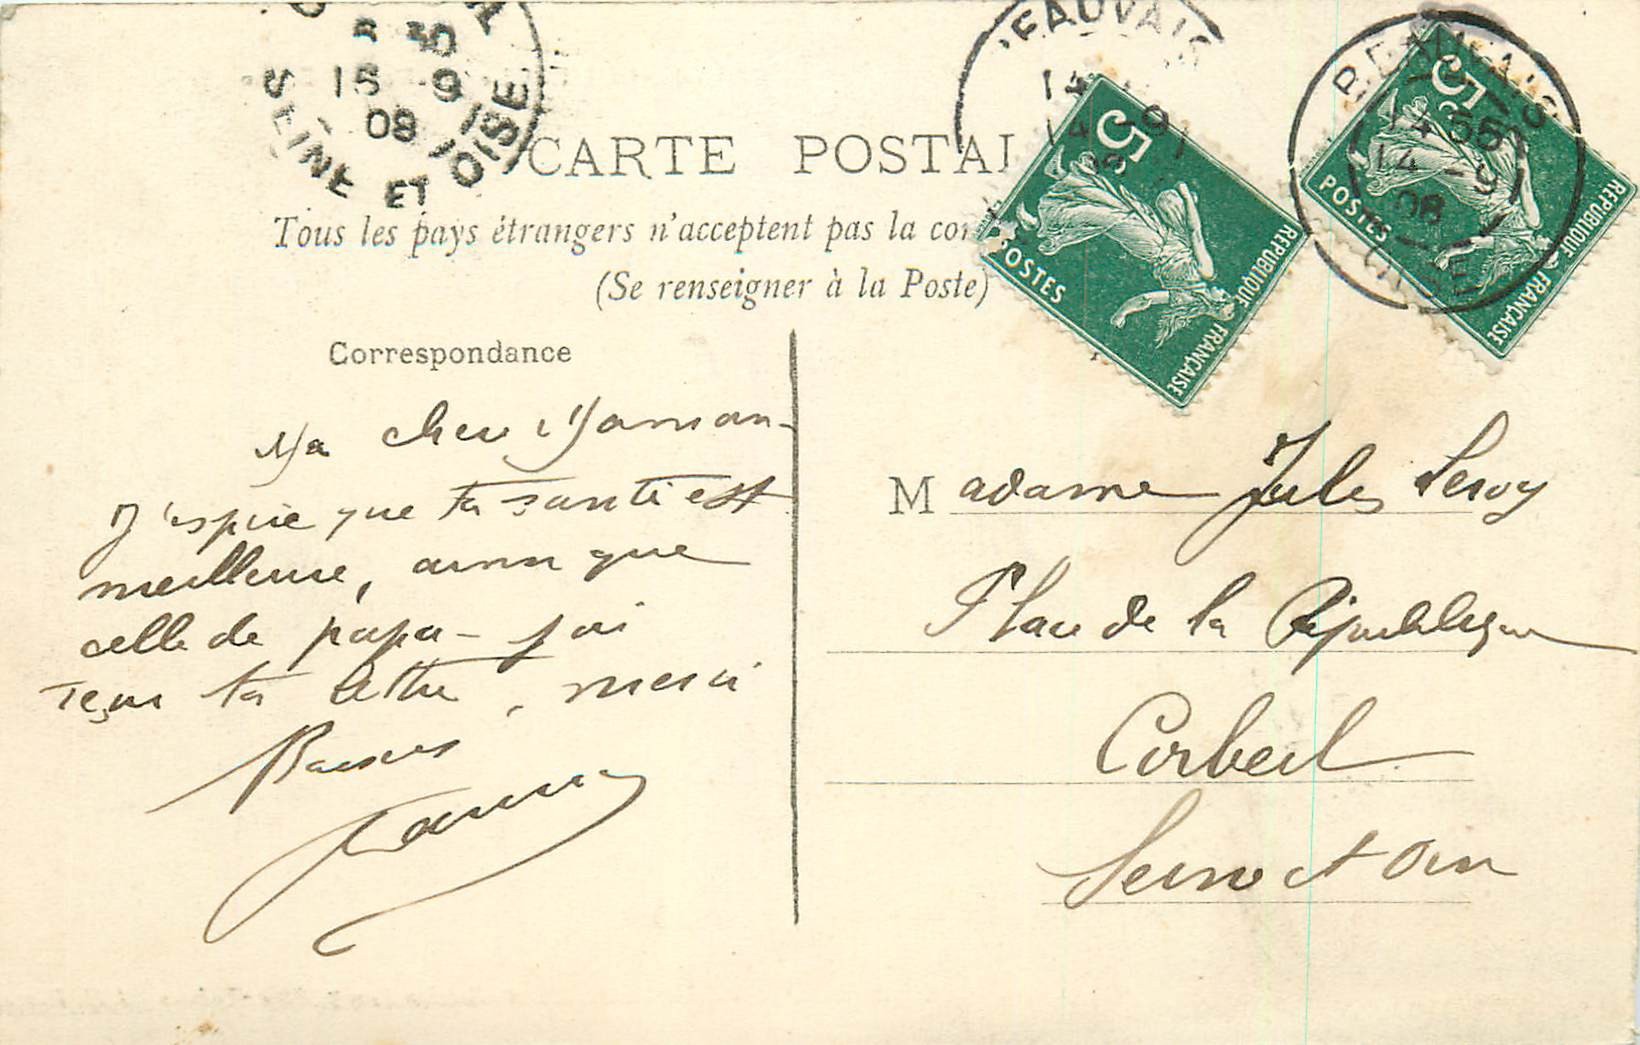 5 30
15 -9
08
SEINE ET OISE
BEAUVAIS
14
14 -9
08
BEAUVAIS
14 55
14 -9
08
OISE
5c
POSTES
REPUBLIQUE FRANÇAISE
5c
POSTES
REPUBLIQUE FRANÇAISE
CARTE POSTAL
Tous les pays étrangers n'acceptent pas la cor
(Se renseigner à la Poste)
Correspondance
Ma cher Maman
J'espère que ta santé est
meilleure, ainsi que
celle de papa - j'ai
reçu ta lettre, merci
Baisers
Madame Jules Leroy
Place de la République
Corbeil
Seine et Oise